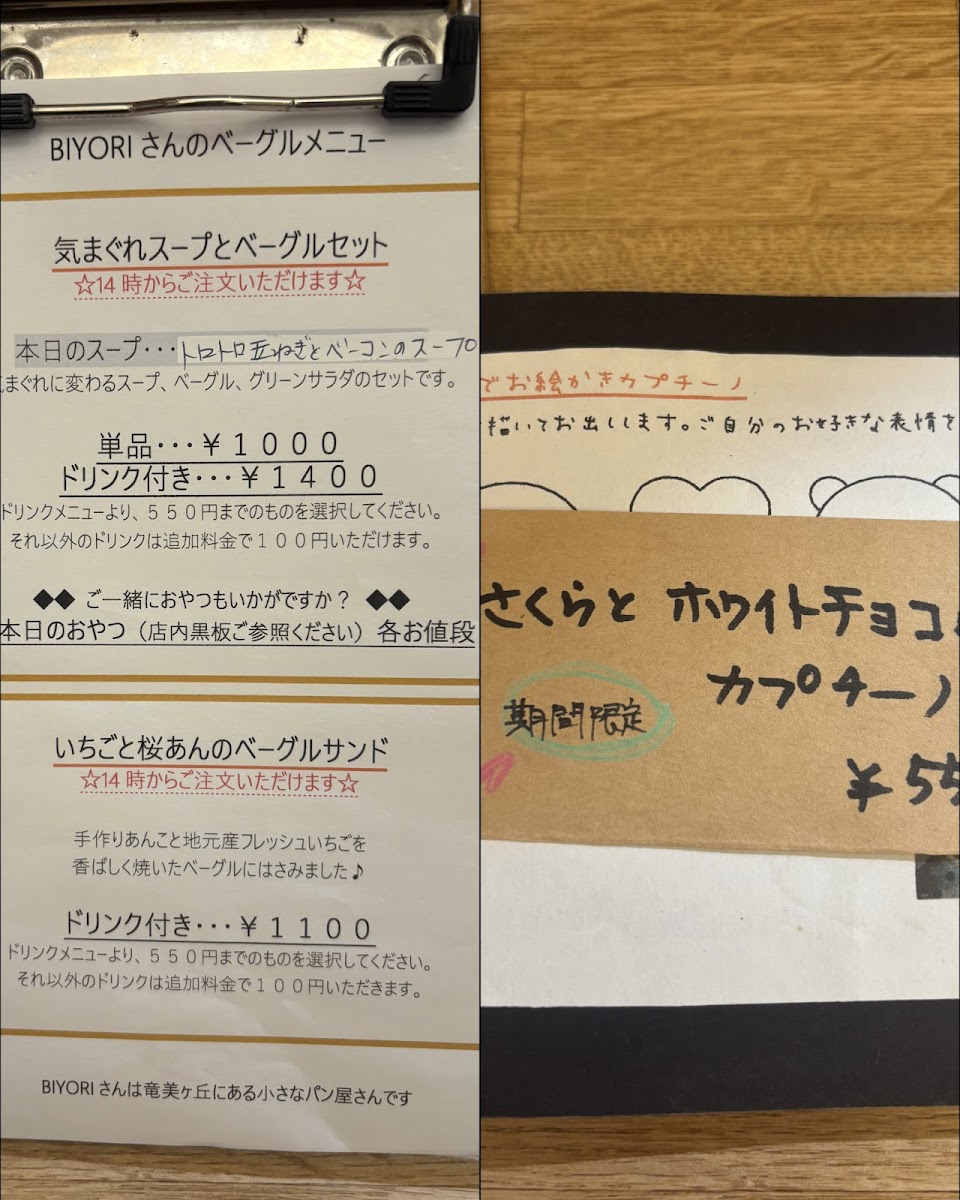 BIYORI さんのベーグルメニュー
気まぐれスープとベーグルセット
☆14 時からご注文いただけます☆
本日のスープ・・・トロトロ玉ねぎとベーコンのスープ
気まぐれに変わるスープ、ベーグル、グリーンサラダのセットです。
単品・・・￥１０００
ドリンク付き・・・￥１４００
ドリンクメニューより、５５０円までのものを選択してください。
それ以外のドリンクは追加料金で１００円いただけます。
◆◆ ご一緒におやつもいかがですか？ ◆◆
本日のおやつ（店内黒板ご参照ください）各お値段
いちごと桜あんのベーグルサンド
☆14 時からご注文いただけます☆
手作りあんこと地元産フレッシュいちごを
香ばしく焼いたベーグルにはさみました♪
ドリンク付き・・・￥１１００
ドリンクメニューより、５５０円までのものを選択してください。
それ以外のドリンクは追加料金で１００円いただきます。
BIYORI さんは竜美ヶ丘にある小さなパン屋さんです
でお絵かきカプチーノ
描いてお出しします。ご自分のお好きな表情を
さくらと ホワイトチョコ
カプチーノ
期間限定
￥55